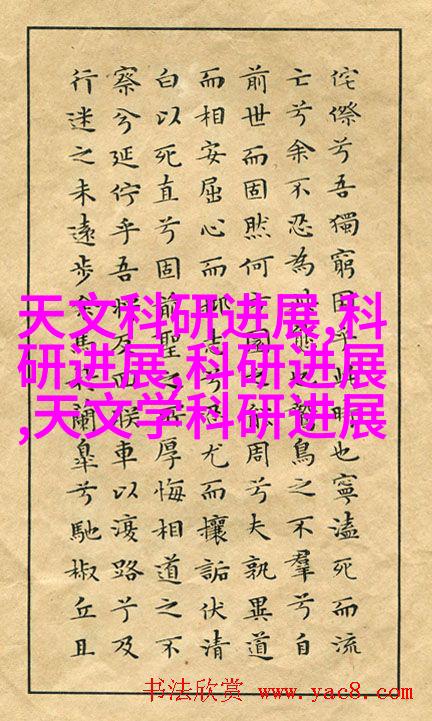 侘傺兮吾獨窮困乎此時也寧溘死而流
亡兮余不忍為此態也鷙鳥之不羣兮自
前世而固然何方圜之能周兮夫孰異道
而相安屈心而抑志兮忍尤而攘詬伏清
白以死直兮固前聖之所厚悔相道之不
察兮延佇乎吾將反回朕車以復路兮及
行迷之未遠步余馬於蘭皋兮馳椒丘且
天文科研进展,科
研进展,科研进展
,天文学科研进展
书法欣赏 www.yac8.com